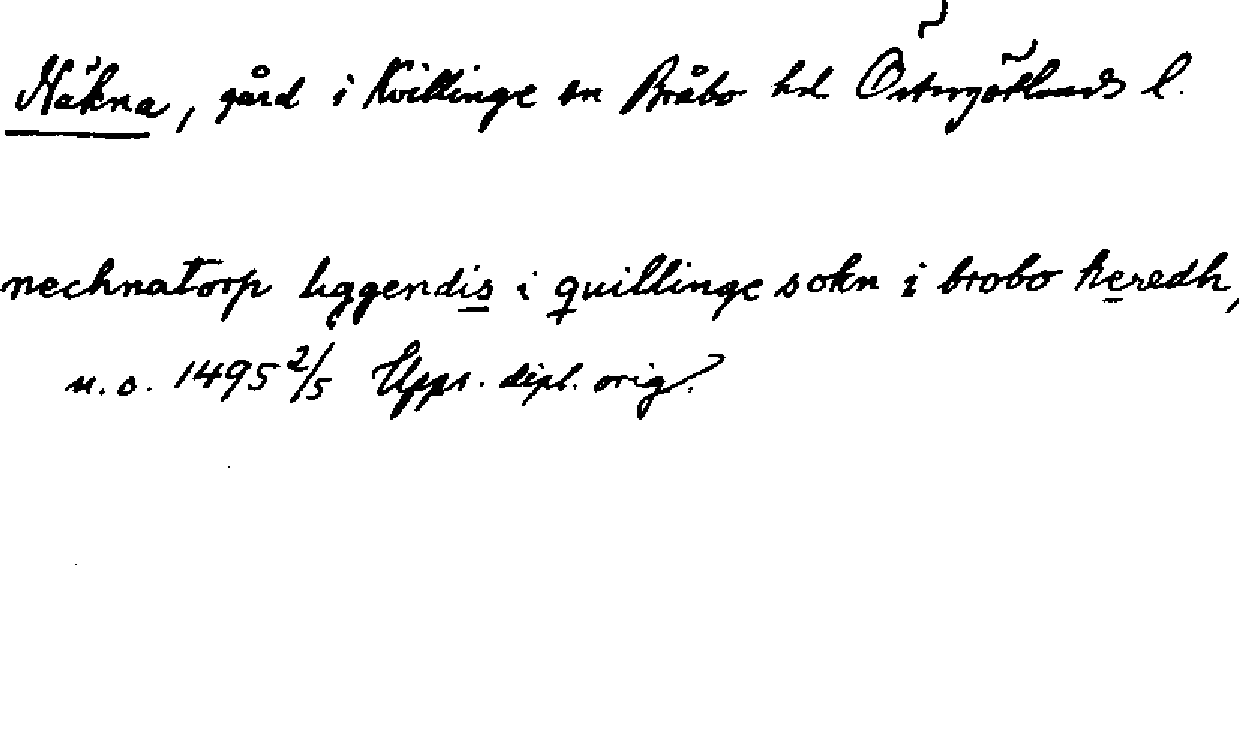 Näkna, gård i Kvillinge sn Bråbo hd Östergötlands l.
nechnatorp liggendis i quillinge sokn i brobo heredh,
u. o. 1495 2/5 Upps. dipl. orig.